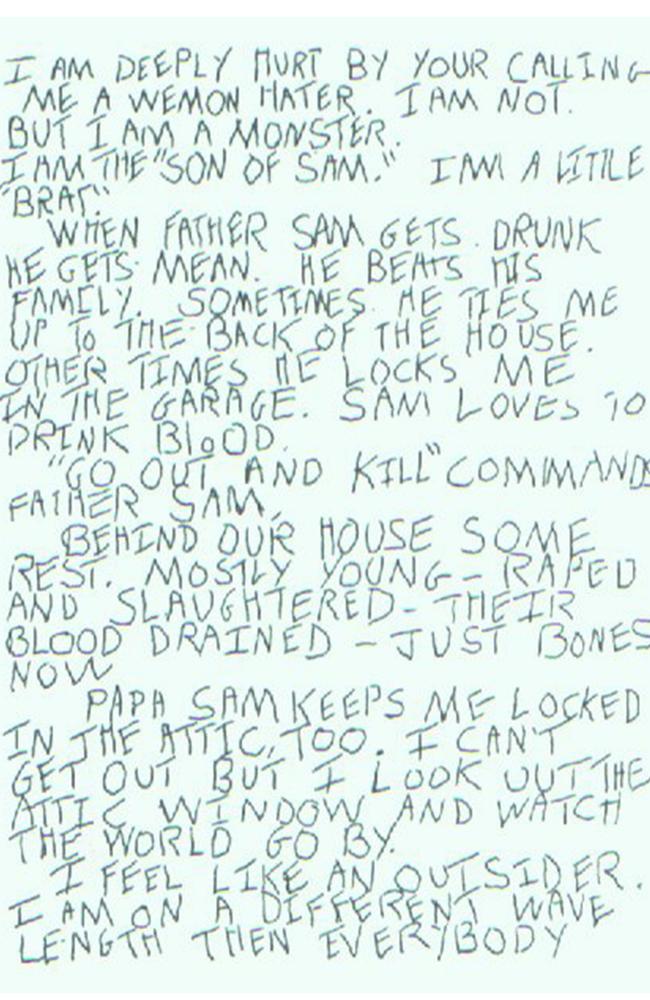 I AM DEEPLY HURT BY YOUR CALLING
ME A WEMON HATER. I AM NOT.
BUT I AM A MONSTER.
I AM THE "SON OF SAM." I AM A LITTLE
"BRAT".
WHEN FATHER SAM GETS DRUNK
HE GETS MEAN. HE BEATS HIS
FAMILY. SOMETIMES HE TIES ME
UP TO THE BACK OF THE HOUSE.
OTHER TIMES HE LOCKS ME
IN THE GARAGE. SAM LOVES TO
DRINK BLOOD.
"GO OUT AND KILL" COMMANDS
FATHER SAM.
BEHIND OUR HOUSE SOME
REST. MOSTLY YOUNG — RAPED
AND SLAUGHTERED — THEIR
BLOOD DRAINED — JUST BONES
NOW
PAPA SAM KEEPS ME LOCKED
IN THE ATTIC, TOO. I CAN'T
GET OUT BUT I LOOK OUT THE
ATTIC WINDOW AND WATCH
THE WORLD GO BY.
I FEEL LIKE AN OUTSIDER.
I AM ON A DIFFERENT WAVE
LENGTH THEN EVERYBODY